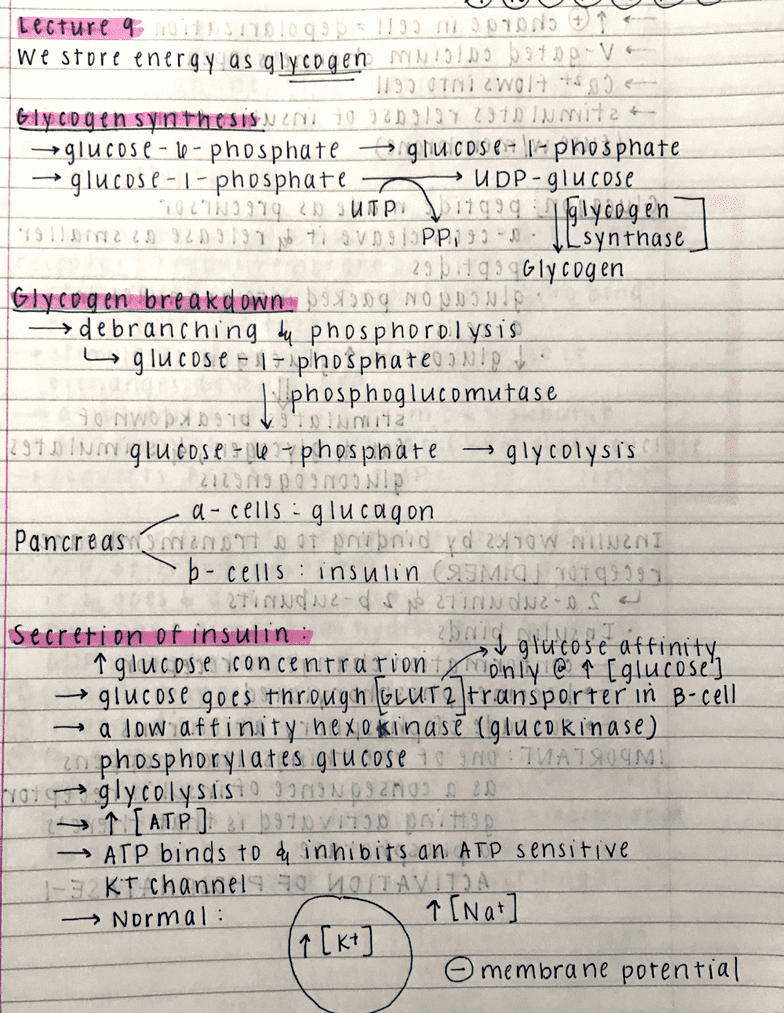 Lecture 9
We store energy as glycogen
Glycogen synthesis
→ glucose-6-phosphate → glucose-1-phosphate
→ glucose-1-phosphate → UDP-glucose
UTP
PPi
[glycogen synthase]
Glycogen
Glycogen breakdown
→ debranching & phosphorolysis
↳ glucose-1-phosphate
↓ phosphoglucomutase
glucose-6-phosphate → glycolysis
a-cells: glucagon
Pancreas
b-cells: insulin
Secretion of insulin:
↑ glucose concentration
→ ↓ glucose affinity
only @ ↑ [glucose]
→ glucose goes through [GLUT2] transporter in B-cell
→ a low affinity hexokinase (glucokinase)
phosphorylates glucose
→ glycolysis
→ ↑ [ATP]
→ ATP binds to & inhibits an ATP sensitive
K+ channel
→ Normal:
↑ [Na+]
↑ [K+]
⊖ membrane potential